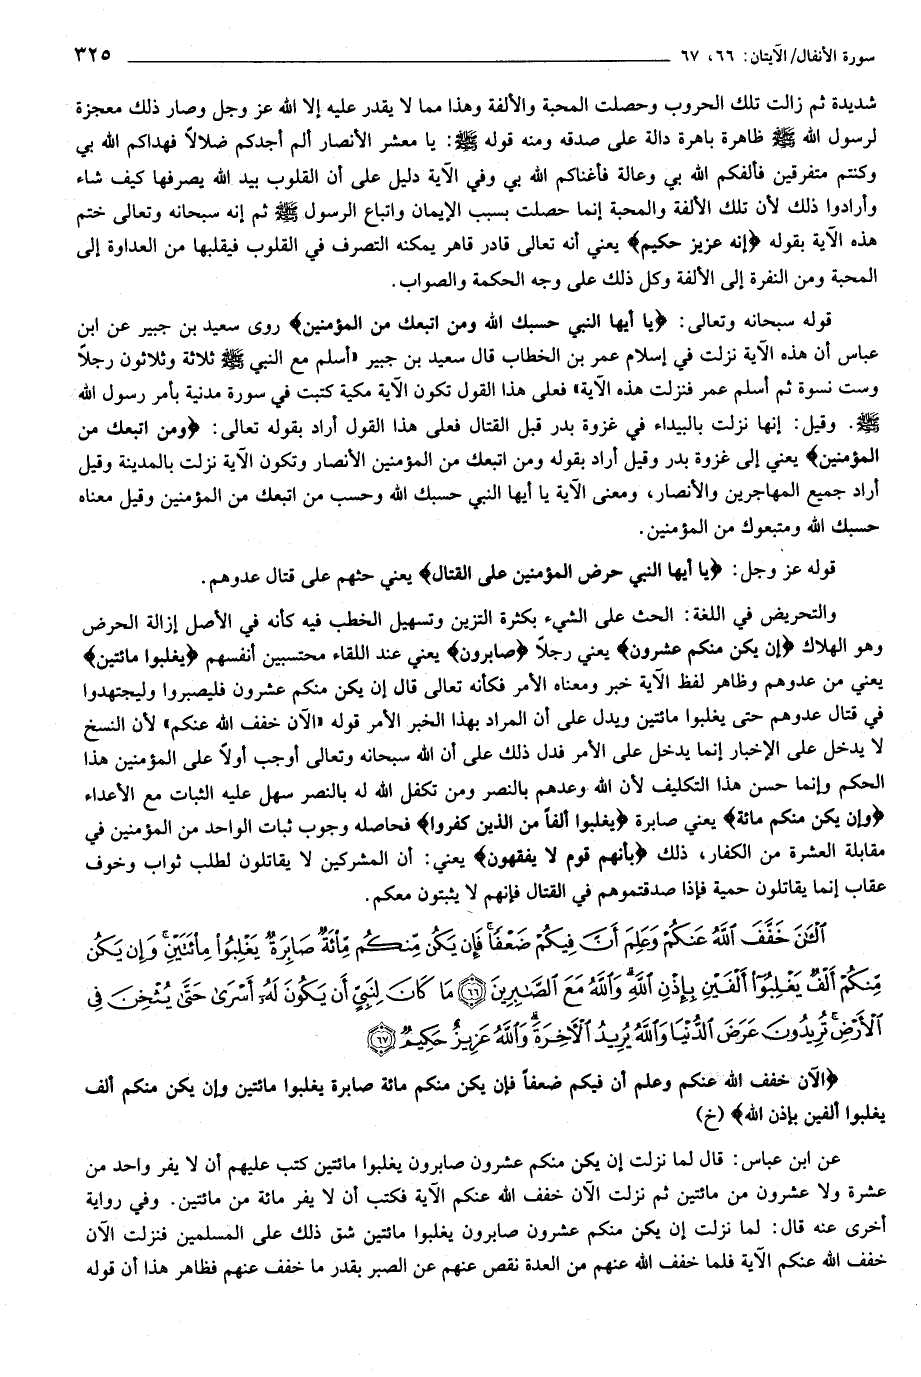 سورة الأنفال/ الآيتان: ٦٦، ٦٧ ٣٢٥
شديدة ثم زالت تلك الحروب وحصلت المحبة والألفة وهذا مما لا يقدر عليه إلا الله عز وجل وصار ذلك معجزة
لرسول الله ﷺ ظاهرة باهرة دالة على صدقه ومنه قوله ﷺ: يا معشر الأنصار ألم أجدكم ضلالاً فهداكم الله بي
وكنتم متفرقين فألفكم الله بي وعالة فأغناكم الله بي وفي الآية دليل على أن القلوب بيد الله يصرفها كيف شاء
وأرادوا ذلك لأن تلك الألفة والمحبة إنما حصلت بسبب الإيمان واتباع الرسول ﷺ ثم إنه سبحانه وتعالى ختم
هذه الآية بقوله ﴿إنه عزيز حكيم﴾ يعني أنه تعالى قادر قاهر يمكنه التصرف في القلوب فيقلبها من العداوة إلى
المحبة ومن النفرة إلى الألفة وكل ذلك على وجه الحكمة والصواب.
قوله سبحانه وتعالى: ﴿يا أيها النبي حسبك الله ومن اتبعك من المؤمنين﴾ روى سعيد بن جبير عن ابن
عباس أن هذه الآية نزلت في إسلام عمر بن الخطاب قال سعيد بن جبير «أسلم مع النبي ﷺ ثلاثة وثلاثون رجلاً
وست نسوة ثم أسلم عمر فنزلت هذه الآية» فعلى هذا القول تكون الآية مكية كتبت في سورة مدنية بأمر رسول الله
ﷺ. وقيل: إنها نزلت بالبيداء في غزوة بدر قبل القتال فعلى هذا القول أراد بقوله تعالى: ﴿ومن اتبعك من
المؤمنين﴾ يعني إلى غزوة بدر وقيل أراد بقوله ومن اتبعك من المؤمنين الأنصار وتكون الآية نزلت بالمدينة وقيل
أراد جميع المهاجرين والأنصار، ومعنى الآية يا أيها النبي حسبك الله وحسب من اتبعك من المؤمنين وقيل معناه
حسبك الله ومتبعوك من المؤمنين.
قوله عز وجل: ﴿يا أيها النبي حرض المؤمنين على القتال﴾ يعني حثهم على قتال عدوهم.
والتحريض في اللغة: الحث على الشيء بكثرة التزين وتسهيل الخطب فيه كأنه في الأصل إزالة الحرض
وهو الهلاك ﴿إن يكن منكم عشرون﴾ يعني رجلاً ﴿صابرون﴾ يعني عند اللقاء محتسبين أنفسهم ﴿يغلبوا مائتين﴾
يعني من عدوهم وظاهر لفظ الآية خبر ومعناه الأمر فكأنه تعالى قال إن يكن منكم عشرون فليصبروا وليجتهدوا
في قتال عدوهم حتى يغلبوا مائتين ويدل على أن المراد بهذا الخبر الأمر قوله «الآن خفف الله عنكم» لأن النسخ
لا يدخل على الإخبار إنما يدخل على الأمر فدل ذلك على أن الله سبحانه وتعالى أوجب أولاً على المؤمنين هذا
الحكم وإنما حسن هذا التكليف لأن الله وعدهم بالنصر ومن تكفل الله له بالنصر سهل عليه الثبات مع الأعداء
﴿وإن يكن منكم مائة﴾ يعني صابرة ﴿يغلبوا ألفاً من الذين كفروا﴾ فحاصله وجوب ثبات الواحد من المؤمنين في
مقابلة العشرة من الكفار، ذلك ﴿بأنهم قوم لا يفقهون﴾ يعني: أن المشركين لا يقاتلون لطلب ثواب وخوف
عقاب إنما يقاتلون حمية فإذا صدقتموهم في القتال فإنهم لا يثبتون معكم.
ٱلْـَٰٔنَ خَفَّفَ ٱللَّهُ عَنكُمْ وَعَلِمَ أَنَّ فِيكُمْ ضَعْفًا ۚ فَإِن يَكُن مِّنكُم مِّا۟ئَةٌ صَابِرَةٌ يَغْلِبُوا۟ مِا۟ئَتَيْنِ ۚ وَإِن يَكُن
مِّنكُمْ أَلْفٌ يَغْلِبُوٓا۟ أَلْفَيْنِ بِإِذْنِ ٱللَّهِ ۗ وَٱللَّهُ مَعَ ٱلصَّٰبِرِينَ ﴿٦٦﴾ مَا كَانَ لِنَبِىٍّ أَن يَكُونَ لَهُۥٓ أَسْرَىٰ حَتَّىٰ يُثْخِنَ فِى
ٱلْأَرْضِ ۚ تُرِيدُونَ عَرَضَ ٱلدُّنْيَا وَٱللَّهُ يُرِيدُ ٱلْـَٔاخِرَةَ ۗ وَٱللَّهُ عَزِيزٌ حَكِيمٌ ﴿٦٧﴾
﴿الآن خفف الله عنكم وعلم أن فيكم ضعفاً فإن يكن منكم مائة صابرة يغلبوا مائتين وإن يكن منكم ألف
يغلبوا ألفين بإذن الله﴾ (خ)
عن ابن عباس: قال لما نزلت إن يكن منكم عشرون صابرون يغلبوا مائتين كتب عليهم أن لا يفر واحد من
عشرة ولا عشرون من مائتين ثم نزلت الآن خفف الله عنكم الآية فكتب أن لا يفر مائة من مائتين. وفي رواية
أخرى عنه قال: لما نزلت إن يكن منكم عشرون صابرون يغلبوا مائتين شق ذلك على المسلمين فنزلت الآن
خفف الله عنكم الآية فلما خفف الله عنهم من العدة نقص عنهم عن الصبر بقدر ما خفف عنهم فظاهر هذا أن قوله